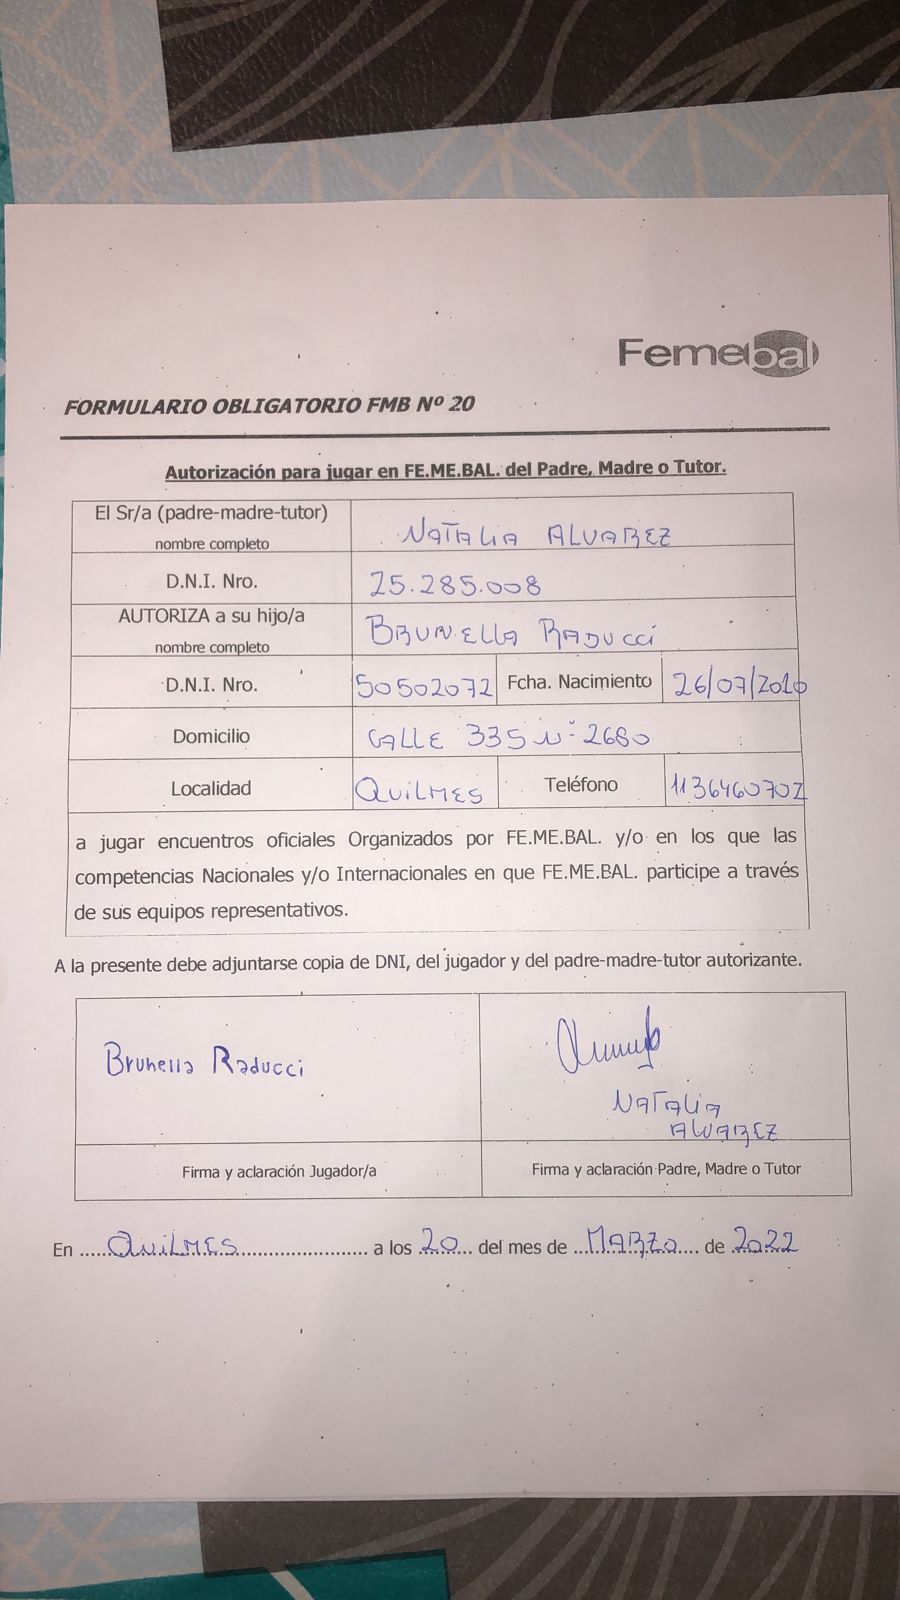 Femebal
FORMULARIO OBLIGATORIO FMB Nº 20
Autorización para jugar en FE.ME.BAL. del Padre, Madre o Tutor.
El Sr/a (padre-madre-tutor)
nombre completo
NATALIA ALVAREZ
D.N.I. Nro. 25.285.008
AUTORIZA a su hijo/a
nombre completo
BRUNELLA RADUCCI
D.N.I. Nro. 50502072 Fcha. Nacimiento 26/07/2010
Domicilio CALLE 335 Nº 2680
Localidad QUILMES Teléfono 1136460702
a jugar encuentros oficiales Organizados por FE.ME.BAL. y/o en los que las
competencias Nacionales y/o Internacionales en que FE.ME.BAL. participe a través
de sus equipos representativos.
A la presente debe adjuntarse copia de DNI, del jugador y del padre-madre-tutor autorizante.
Brunella Raducci
NATALIA
ALVAREZ
Firma y aclaración Jugador/a Firma y aclaración Padre, Madre o Tutor
En ......QUILMES........................ a los .20... del mes de ..MARZO.... de 2022